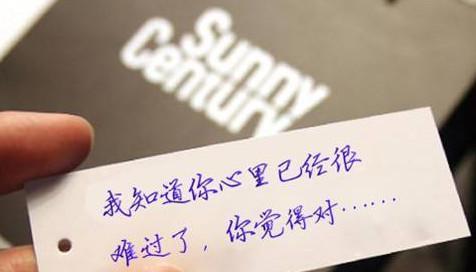 Sunny
Century
我知道你心里已经很
难过了，你觉得对……